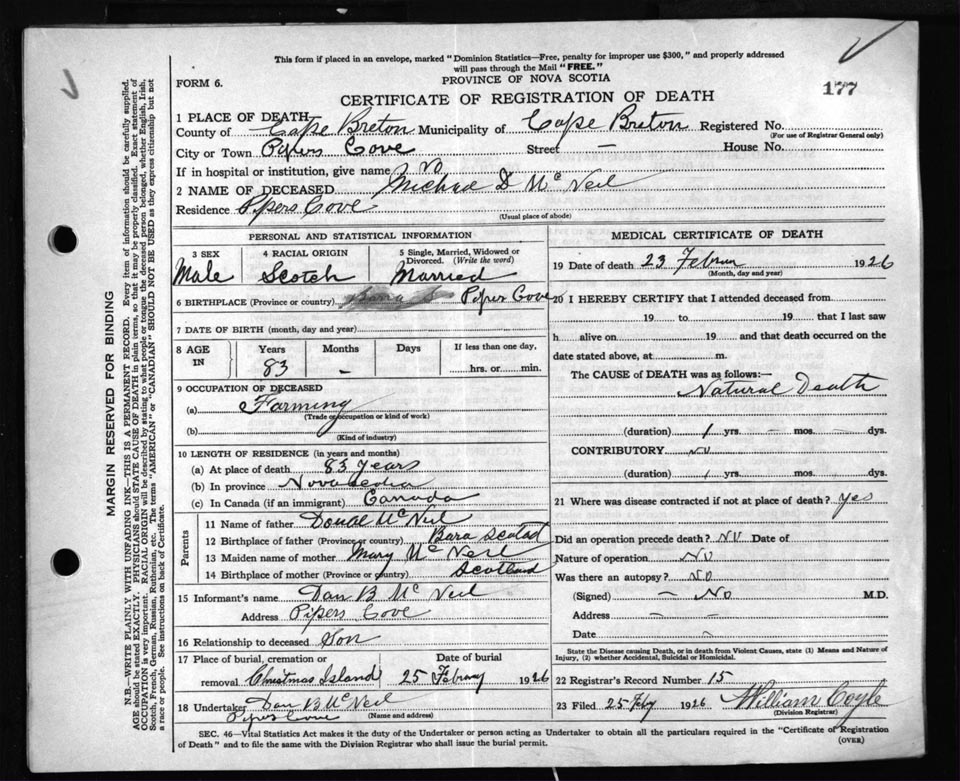 This form if placed in an envelope, marked "Dominion Statistics—Free, penalty for improper use $300," and properly addressed
will pass through the Mail "FREE."
FORM 6.
PROVINCE OF NOVA SCOTIA
177
CERTIFICATE OF REGISTRATION OF DEATH
1 PLACE OF DEATH
County of Cape Breton Municipality of Cape Breton Registered No.
(For use of Registrar General only)
City or Town Pipers Cove Street — House No.
If in hospital or institution, give name No
2 NAME OF DECEASED Michael D Mc Neil
Residence Pipers Cove
(Usual place of abode)
PERSONAL AND STATISTICAL INFORMATION
3 SEX
Male
4 RACIAL ORIGIN
Scotch
5 Single, Married, Widowed or
Divorced. (Write the word)
Married
6 BIRTHPLACE (Province or country) Piper Cove
7 DATE OF BIRTH (month, day and year)
8 AGE IN
Years Months Days If less than one day,
83 — hrs. or min.
9 OCCUPATION OF DECEASED
(a) Farming
(Trade or occupation or kind of work)
(b)
(Kind of industry)
10 LENGTH OF RESIDENCE (in years and months)
(a) At place of death 83 Years
(b) In province Nova Scotia
(c) In Canada (if an immigrant) Canada
Parents
11 Name of father Mc Neil
12 Birthplace of father (Province or country) Bara
13 Maiden name of mother Mary Mc Neil
14 Birthplace of mother (Province or country) Scotland
15 Informant's name Dan B Mc Neil
Address Pipers Cove
16 Relationship to deceased Son
17 Place of burial, cremation or Date of burial
removal Christmas Island 25 Febuary 1926
18 Undertaker Dan B Mc Neil
Pipers Cove (Name and address)
MEDICAL CERTIFICATE OF DEATH
19 Date of death 23 1926
(Month, day and year)
20 I HEREBY CERTIFY that I attended deceased from
19 to 19 that I last saw
h alive on 19 and that death occurred on the
date stated above, at m.
The CAUSE of DEATH was as follows:—
Natural Death
(duration) yrs. — mos. — dys.
CONTRIBUTORY No
(duration) yrs. mos. dys.
21 Where was disease contracted if not at place of death? Yes
Did an operation precede death? No Date of
Nature of operation No
Was there an autopsy? No
(Signed) — No M.D.
Address —
Date ~
State the Disease causing Death, or in death from Violent Causes, state (1) Means and Nature of
Injury, (2) whether Accidental, Suicidal or Homicidal.
22 Registrar's Record Number 15
23 Filed 25 Feby 1926 William Coyle
(Division Registrar)
SEC. 46—Vital Statistics Act makes it the duty of the Undertaker or person acting as Undertaker to obtain all the particulars required in the "Certificate of Registration
of Death" and to file the same with the Division Registrar who shall issue the burial permit.
(OVER)
MARGIN RESERVED FOR BINDING
N.B.—WRITE PLAINLY WITH UNFADING INK—THIS IS A PERMANENT RECORD. Every item of information should be carefully supplied.
AGE should be stated EXACTLY. PHYSICIANS should STATE CAUSE OF DEATH in plain terms, so that it may be properly classified. Exact statement of
OCCUPATION is very important. RACIAL ORIGIN will be described by stating to what people or tongue the deceased person belonged, whether English, Irish,
Scotch, French, German, Russian, Ruthenian, etc. The terms "AMERICAN" or "CANADIAN" SHOULD NOT BE USED as they express citizenship but not
a race or people. See instructions on back of Certificate.